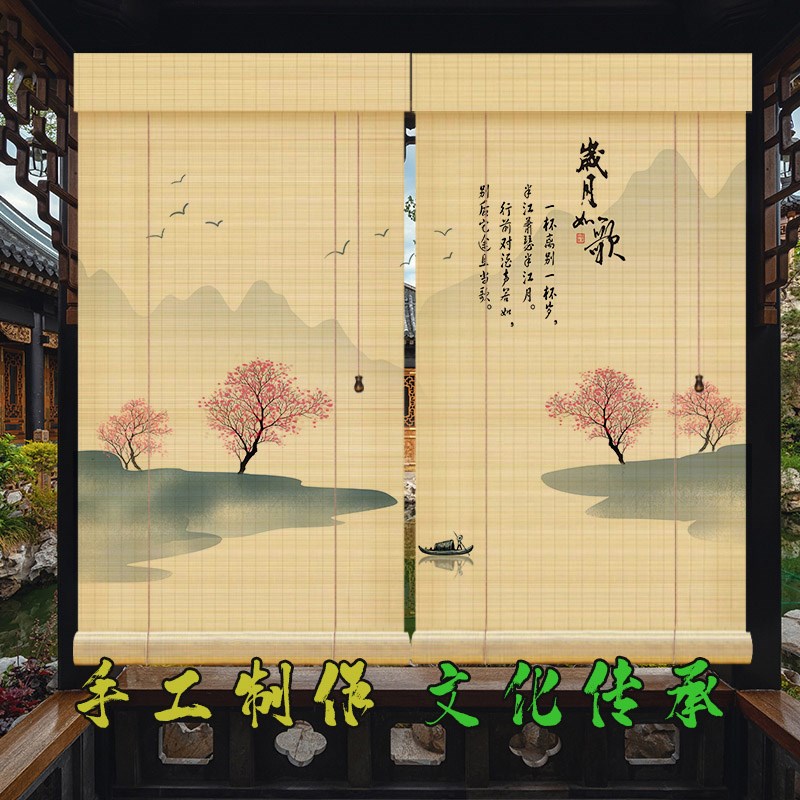 歲月如歌
一杯离别一杯岁，
半江萧瑟半江月。
行前对酒若如，
别后途且当歌。
手工制作 文化传承